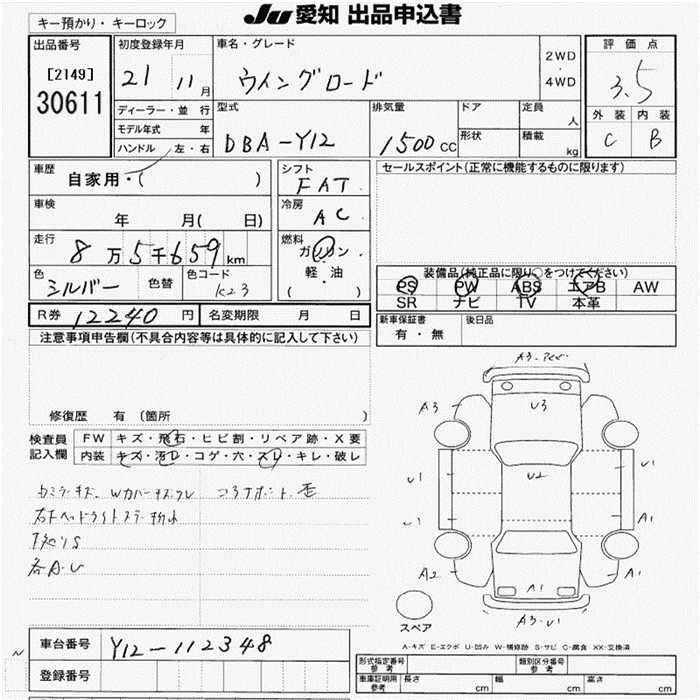 キー預かり・キーロック
JU 愛知 出品申込書
出品番号
[2149]
30611
初度登録年月
21 11 月
車名・グレード
ウイングロード
2WD
・
4WD
評価点
3.5
外装 内装
C B
ディーラー・並行
モデル年式 年
ハンドル 左・右
型式
DBA-Y12
排気量
1500 cc
ドア
形状
定員 人
積載 kg
車歴
自家用・( )
シフト
FAT
セールスポイント(正常に機能するものに限ります)
車検
年 月( 日)
冷房
AC
走行
8万5千659km
燃料
ガソリン
・
軽・油
( )
色
シルバー
色替
色コード
K23
装備品(純正品に限り○をつけてください)
PS PW ABS エアB AW
SR ナビ TV 本革
R券 12240 円
名変期限 月 日
新車保証書
有・無
後日品
注意事項申告欄(不具合内容等は具体的に記入して下さい)
修復歴 有(箇所 )
検査員
記入欄
FW キズ・飛石・ヒビ割・リペア跡・X要
内装 キズ・汚レ・コゲ・穴・スレ・キレ・破レ
各A.U
A3
U3
U1
U2
U1
U1
A1
A2
A1
A1
A3.U1
スペア
A-キズ E-エクボ U-凹み W-補修跡 S-サビ C-腐食 XX-交換済
車台番号 Y12-112348
登録番号
形式指定番号
参考
類別区分番号
参考
車庫証明用
参考
長さ cm
幅 cm
高さ cm